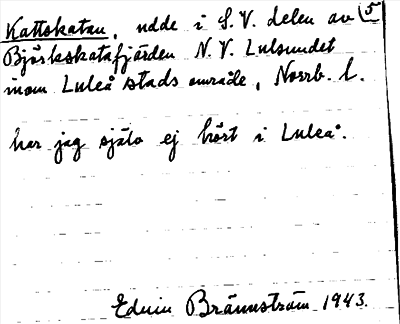 Kattskatan, udde i S.V. delen av 5
Björkskatafjärden N.V. Lulsundet
inom Luleå stads område, Norrb. l.
har jag själv ej hört i Luleå.
Edvin Brännström 1943.